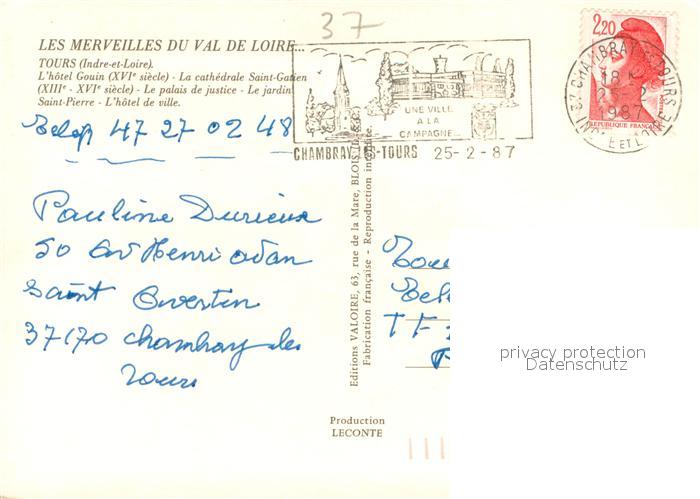 37
LES MERVEILLES DU VAL DE LOIRE...
TOURS (Indre-et-Loire).
L'hôtel Gouin (XVIe siècle) - La cathédrale Saint-Gatien
(XIIIe - XVIe siècle) - Le palais de justice - Le jardin
Saint-Pierre - L'hôtel de ville.
47 27 02 48
UNE VILLE
A LA
CAMPAGNE...
CHAMBRAY LES-TOURS 25-2-87
2,20
REPUBLIQUE FRANÇAISE
37 CHAMBRAY LES TOURS
18 H
25-2
1987
INDRE ET LOIRE
Pauline Durieux
50 av Henri adam
Saint Avertin
37170 chambray les
Tours
Editions VALOIRE, 63, rue de la Mare, BLOIS
Fabrication française - Reproduction interdite.
TF
privacy protection
Datenschutz
Production
LECONTE